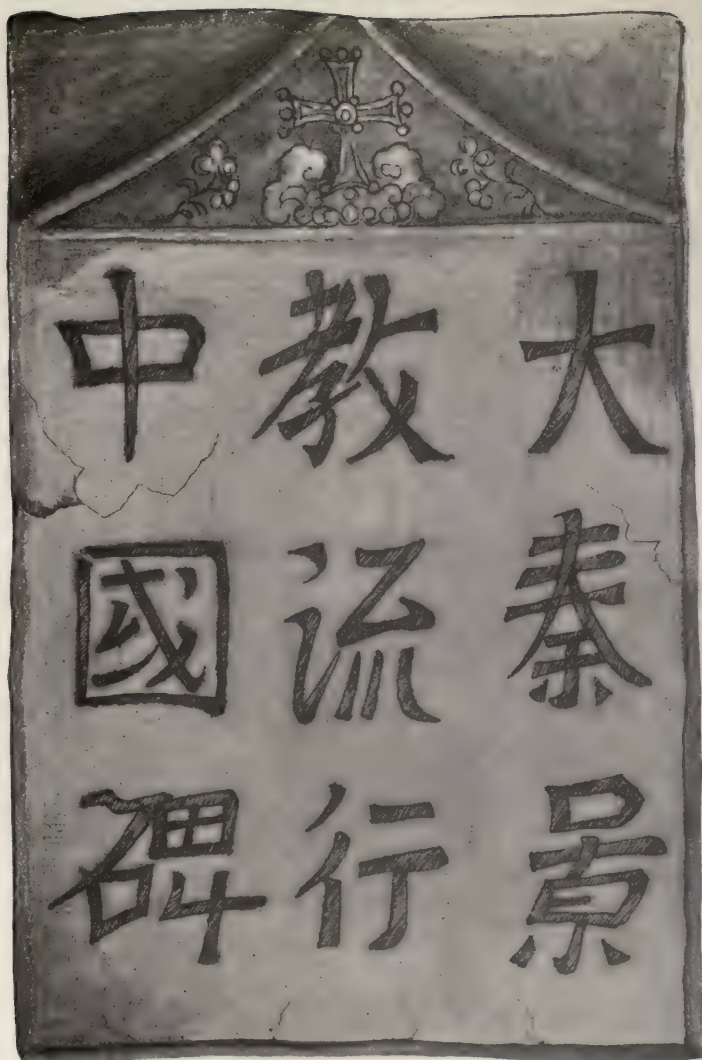 大秦景
教流行
中國碑